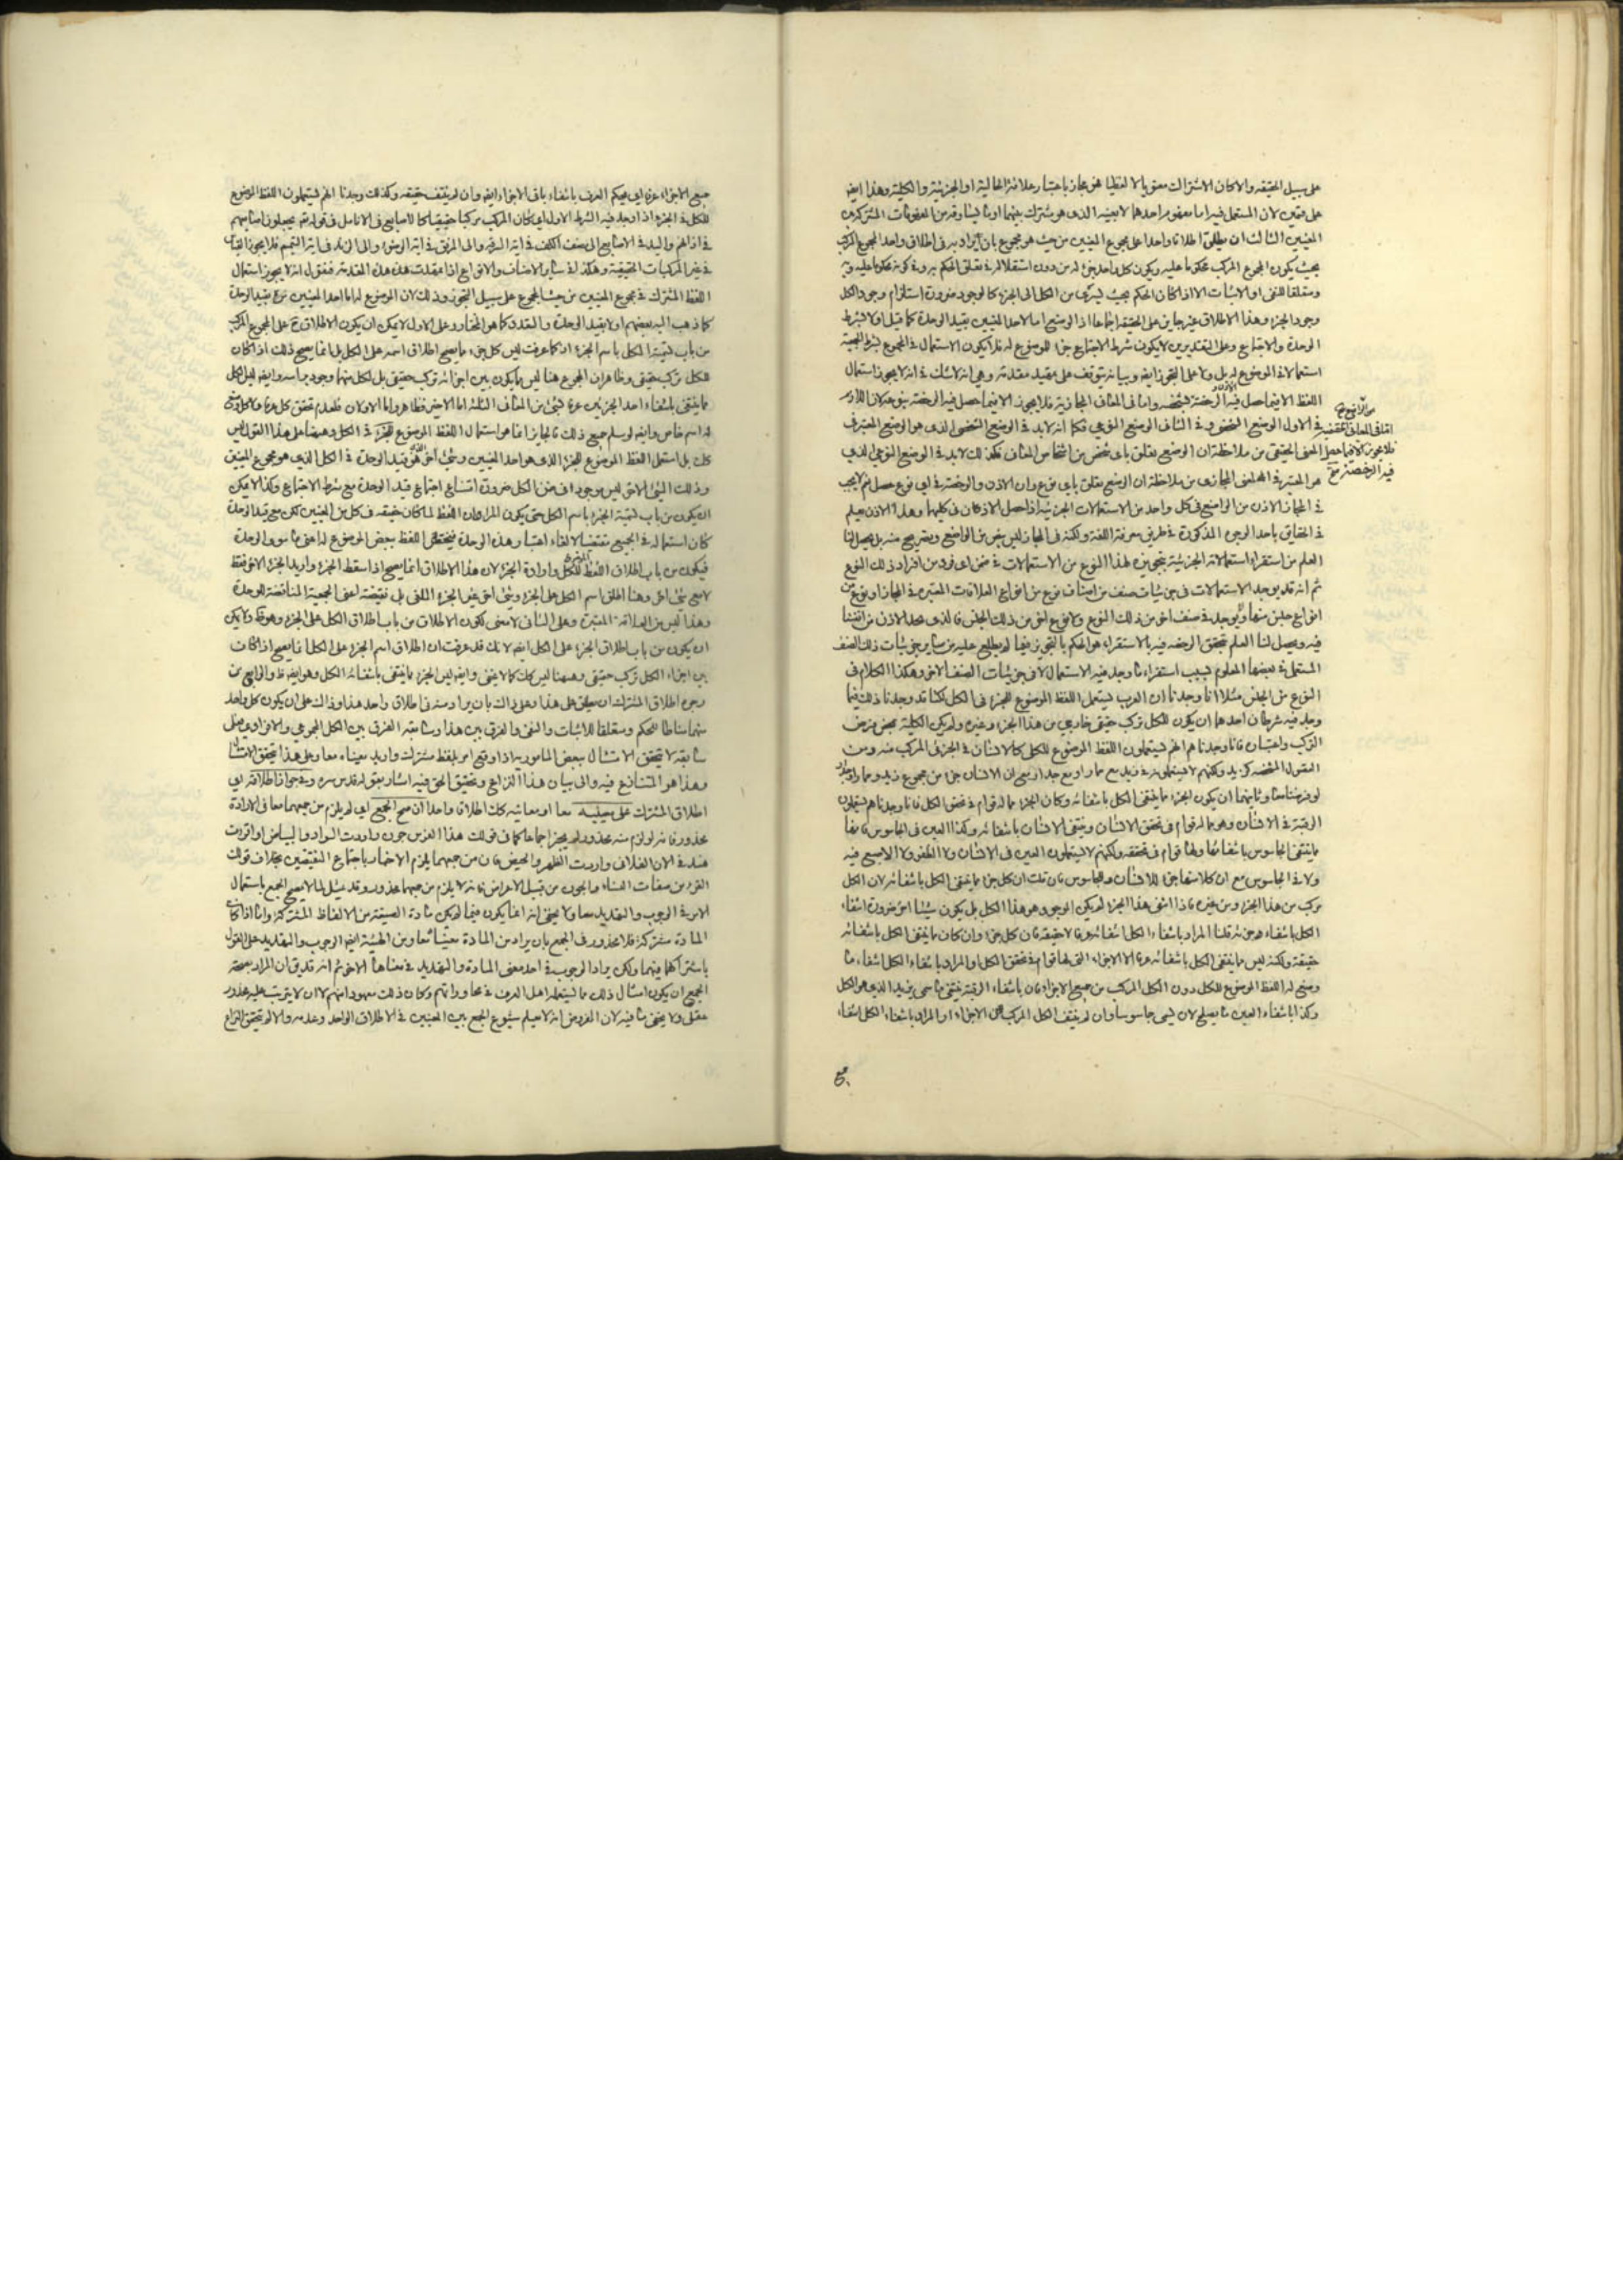 على سبيل الحقيقة والا كان الاشتراك معنويا لا لفظيا هى مجاز باعتبار علاقة الحالية او الجزئية والكلية وهذا ايضا
على قسمين لان المستعمل فيه اما مفهوم احدهما لا بعينه الذى هو مشترك بينهما او ما يساوقه من المفهومات المشتركة بين
المعنيين الثالث ان يطلق اطلاقا واحدا على مجموع المعنيين من حيث هو مجموع بان يراد به فى اطلاق واحد المجموع المركب
بحيث يكون المجموع المركب محكوما عليه ويكون كل واحد جزء له من دون استقلاله فى تعلق الحكم به وفى كونه محكوما عليه وبه
ومتعلقا للنفى او الاثبات الا اذا كان الحكم بحيث يسرى من الكل الى الجزء كالوجود ضرورة استلزام وجود الكل
وجود الجزء وهذا الاطلاق غير جايز على الحقيقة اجماعا اذ الوضع اما لاحد المعنيين بقيد الوحدة كما قيل او لا بشرط
الوحدة والاجتماع وعلى التقديرين لا يكون شرط الاجتماع جزء للموضوع له فلا يكون الاستعمال فى المجموع بشرط الجمعية
استعمالا فى الموضوع له بل ولا على التجوز ايضا وبيانه يتوقف على تمهيد مقدمة وهى انه لا شك فى انه لا يجوز استعمال
اللفظ الا فيما حصل فيه الرخصة
فى الاول الوضع الشخصى وفى الثانى الوضع النوعى فكما انه لا بد فى الوضع الشخصى الذى هو الوضع المعتبر فى
المعنى الحقيقى من ملاحظة ان الوضع تعلق باى شخص من اشخاص المعانى فكذلك لا بد فى الوضع النوعى الذى
هو المعتبر فى المعنى المجازى من ملاحظة ان الوضع تعلق باى نوع وان الاذن والرخصة فى اى نوع حصل نعم لا يجب
فى المجاز الاذن من الواضع فى كل واحد من الاستعمالات الجزئية
فى الحقايق باحد الوجوه المذكورة فى طريق معرفة اللغة ولكنه فى المجاز ليس بنص من الواضع وتصريح منه بل يحصل لنا
العلم من استقراء استعمالاته الجزئية بتجويزه لهذا النوع من الاستعمالات فى ضمن اى فرد من افراد ذلك النوع
ثم انه قد يوجد الاستعمالات فى جزئيات صنف من اصناف نوع من انواع العلاقات المعتبرة فى المجاز او نوع من
انواع جنس منها ولا يوجد فى صنف اخر من ذلك النوع ولا نوع اخر من ذلك الجنس فالذى
فيه ويحصل لنا العلم بتحقق الرخصة فيه بالاستقراء هو الحكم بالتجويز فيما لم يطلع عليه من ساير جزئيات ذلك الصنف
المستعمل فى بعضها المعلوم بسبب استقراء ما وجد فيه الاستعمال لا فى جزئيات الصنف الاخر وهكذا الكلام فى
النوع من الجنس مثلا انا وجدنا ان العرب يستعمل اللفظ الموضوع للجزء فى الكل لكنا قد وجدنا ذلك فيما
وجد فيه شرطان احدهما ان يكون للكل تركب حقيقى خارجى من هذا الجزء وغيره ولم يكن الكلية بمحض فرض
التركب واعتباره فانا وجدناهم انهم يستعملون اللفظ الموضوع للكل كالانسان فى الجزء فى المركب منه ومن
وثانيهما ان يكون الجزء مما ينتفى الكل بانتفائه وكان الجزء مما له قوام فى تحقق الكل فانا وجدناهم يستعملون
الرقبة فى الانسان وهو مما له قوام فى تحقق الانسان وينتفى الانسان بانتفائه وكذا العين فى الجاسوس فانها
مما ينتفى الجاسوس بانتفائها ولها قوام فى تحققه ولكنهم لا يستعملون العين فى الانسان ولا الظفر ولا الاصبع فيه
ولا فى الجاسوس مع ان كلا منها جزء للانسان وللجاسوس فان قلت ان كل جزء مما ينتفى الكل بانتفائه لان الكل
مركب من هذا الجزء ومن غيره فاذا انتفى هذا الجزء لم يكن الموجود هو هذا الكل بل يكون شيئا اخر ضرورة انتفاء
الكل بانتفاء جزئه قلنا المراد بانتفاء الكل انتفائه عرفا لا حقيقة فان كل جزء وان كان مما ينتفى الكل بانتفائه
حقيقة ولكنه ليس مما ينتفى الكل بانتفائه عرفا الا الاجزاء التى لها قوام فى تحقق الكل والمراد بانتفاء الكل انتفاء ما
وضع له اللفظ الموضوع للكل دون الكل المركب من جميع الاجزاء فان بانتفاء الرقبة ينتفى ما سمى بزيد الذى هو الكل
وكذا بانتفاء العين ما يصلح لان يسمى جاسوسا وان لم ينتف الكل المركب من الاجزاء او المراد بانتفاء الكل انتفاء
جميع الاجزاء عرفا اى يحكم العرف بانتفاء باقى الاجزاء ايضا وان لم ينتف حقيقة وكذلك وجدنا انهم يستعملون اللفظ الموضوع
للكل فى الجزء اذا وجد فيه الشرط الاول اى كان المركب مركبا حقيقيا كالاصابع فى الانامل فى قوله تع يجعلون اصابعهم
فى اذانهم واليد فى الاصابع الى نصف الكف فى اية السرقة والى المرفق فى اية الوضوء والى الزند فى اية التيمم
فى غير المركبات الحقيقية وهكذا فى ساير الاصناف والانواع اذا مهدت هذه المقدمة فنقول انه لا يجوز استعمال
اللفظ المشترك فى مجموع المعنيين من حيث المجموع على سبيل التجوز وذلك لان الموضوع له اما احد المعنيين مع قيد الوحدة
كما ذهب اليه بعضهم او لا بقيد الوحدة والتعدد كما هو المختار وعلى الاول لا يمكن ان يكون الاطلاق ح على المجموع المركب
من باب تسمية الكل باسم الجزء اذ كما عرفت ليس كل جزء مما يصح اطلاق اسمه على الكل بل انما يصح ذلك اذا كان
للكل تركب حقيقى وظاهر ان المجموع هنا ليس مما يكون بين اجزائه تركب حقيقى بل لكل منهما وجود براسه وايضا ليس الكل
مما ينتفى بانتفاء احد الجزئين عرفا
له اسم خاص وايضا لو سلم جميع ذلك فالجايز انما هو استعمال اللفظ الموضوع للجزء فى الكل وههنا على هذا القول ليس
كذلك بل استعمل اللفظ الموضوع للجزء الذى هو احد المعنيين وشئ اخر هو قيد الوحدة فى الكل الذى هو مجموع المعنيين
وذلك الشئ الاخر ليس موجودا فى ضمن الكل ضرورة امتناع اجتماع قيد الوحدة مع شرط الاجتماع وكذا لا يمكن
ان يكون من باب تسمية الجزء باسم الكل حتى يكون المراد ان اللفظ لما كان حقيقة فى كل من المعنيين لكن مع قيد الوحدة
كان استعماله فى الجميع مقتضيا لالغاء اعتبار هذه الوحدة فيختص اللفظ ببعض الموضوع له اعنى ما سوى الوحدة
فيكون من باب اطلاق اللفظ للكل وارادة الجزء لان هذا الاطلاق انما يصح اذا اسقط الجزء واريد الجزء الاخر فقط
لا مع شئ اخر وهنا اطلق اسم الكل على الجزء وشئ اخر غير الجزء الملغى بل نقيضه اعنى الجمعية المناقضة للوحدة
وهذا ليس من العلاقة المعتبرة وعلى الثانى لا معنى لكون الاطلاق من باب اطلاق الكل على الجزء وهو ظ ولا يمكن
ان يكون من باب اطلاق الجزء على الكل ايضا لانك قد عرفت ان اطلاق اسم الجزء على الكل انما يصح اذا كان
بين اجزاء الكل تركب حقيقى وههنا ليس كذلك كما لا يخفى وايضا ليس الجزء مما ينتفى بانتفائه الكل وهو ايضا ظ والرابع من
وجوه اطلاق المشترك ان يطلق على هذا وعلى ذاك بان يراد منه فى اطلاق واحد هذا وذاك على ان يكون كل واحد
منهما مناطا للحكم ومتعلقا للاثبات والنفى والفرق بين هذا وسابقه الفرق بين الكل المجموعى والافرادى
سابقه لا يتحقق الامتثال ببعض المامور به اذا وقع امر بلفظ مشترك واريد معناه معا وعلى هذا يتحقق الامتثال
وهذا هو المتنازع فيه والى بيان هذا النزاع وتحقيق الحق فيه اشار بقوله قدس سره وفى جواز اطلاقه اى
اطلاق المشترك على معنييه معا او معانيه كذلك اطلاقا واحدا ان صح الجمع اى لم يلزم من جمعهما معا فى الارادة
محذور فانه لو لزم منه محذور لم يجز اجماعا كما فى قولك هذا الفرس جون واردت السواد والبياض او اقرئت
هند فى الان الفلانى واردت الطهر والحيض فان من جمعهما يلزم الاخبار باجتماع النقيضين بخلاف قولك
القرء من صفات النساء والجون من قبيل الاعراض فانه لا يلزم من جمعهما محذور وقد يمثل لما لا يصح الجمع باستعمال
الامر فى الوجوب والتهديد معا ولا يخفى انه انما يكون فيما لم يكن مادة الصيغة من الالفاظ المشتركة واما اذا كان
المادة مشتركة فلا محذور فى الجمع بان يراد من المادة معنياها معا ومن الهيئة ايضا الوجوب والتهديد على القول
باشتراكهما بينهما ولكن يراد الوجوب فى احد معنى المادة والتهديد فى معناها الاخر ثم انه قد يق ان المراد بصحة
الجمع ان يكون امثال ذلك مما يستعمله اهل العرف فى محاوراتهم وكان ذلك معهودا منهم لا ان لا يترتب عليه محذور
عقلى ولا يخفى ما فيه لان الغرض انه لا يعلم شيوع الجمع بين المعنيين فى الاطلاق الواحد وعدمه والا لم يتحقق النزاع